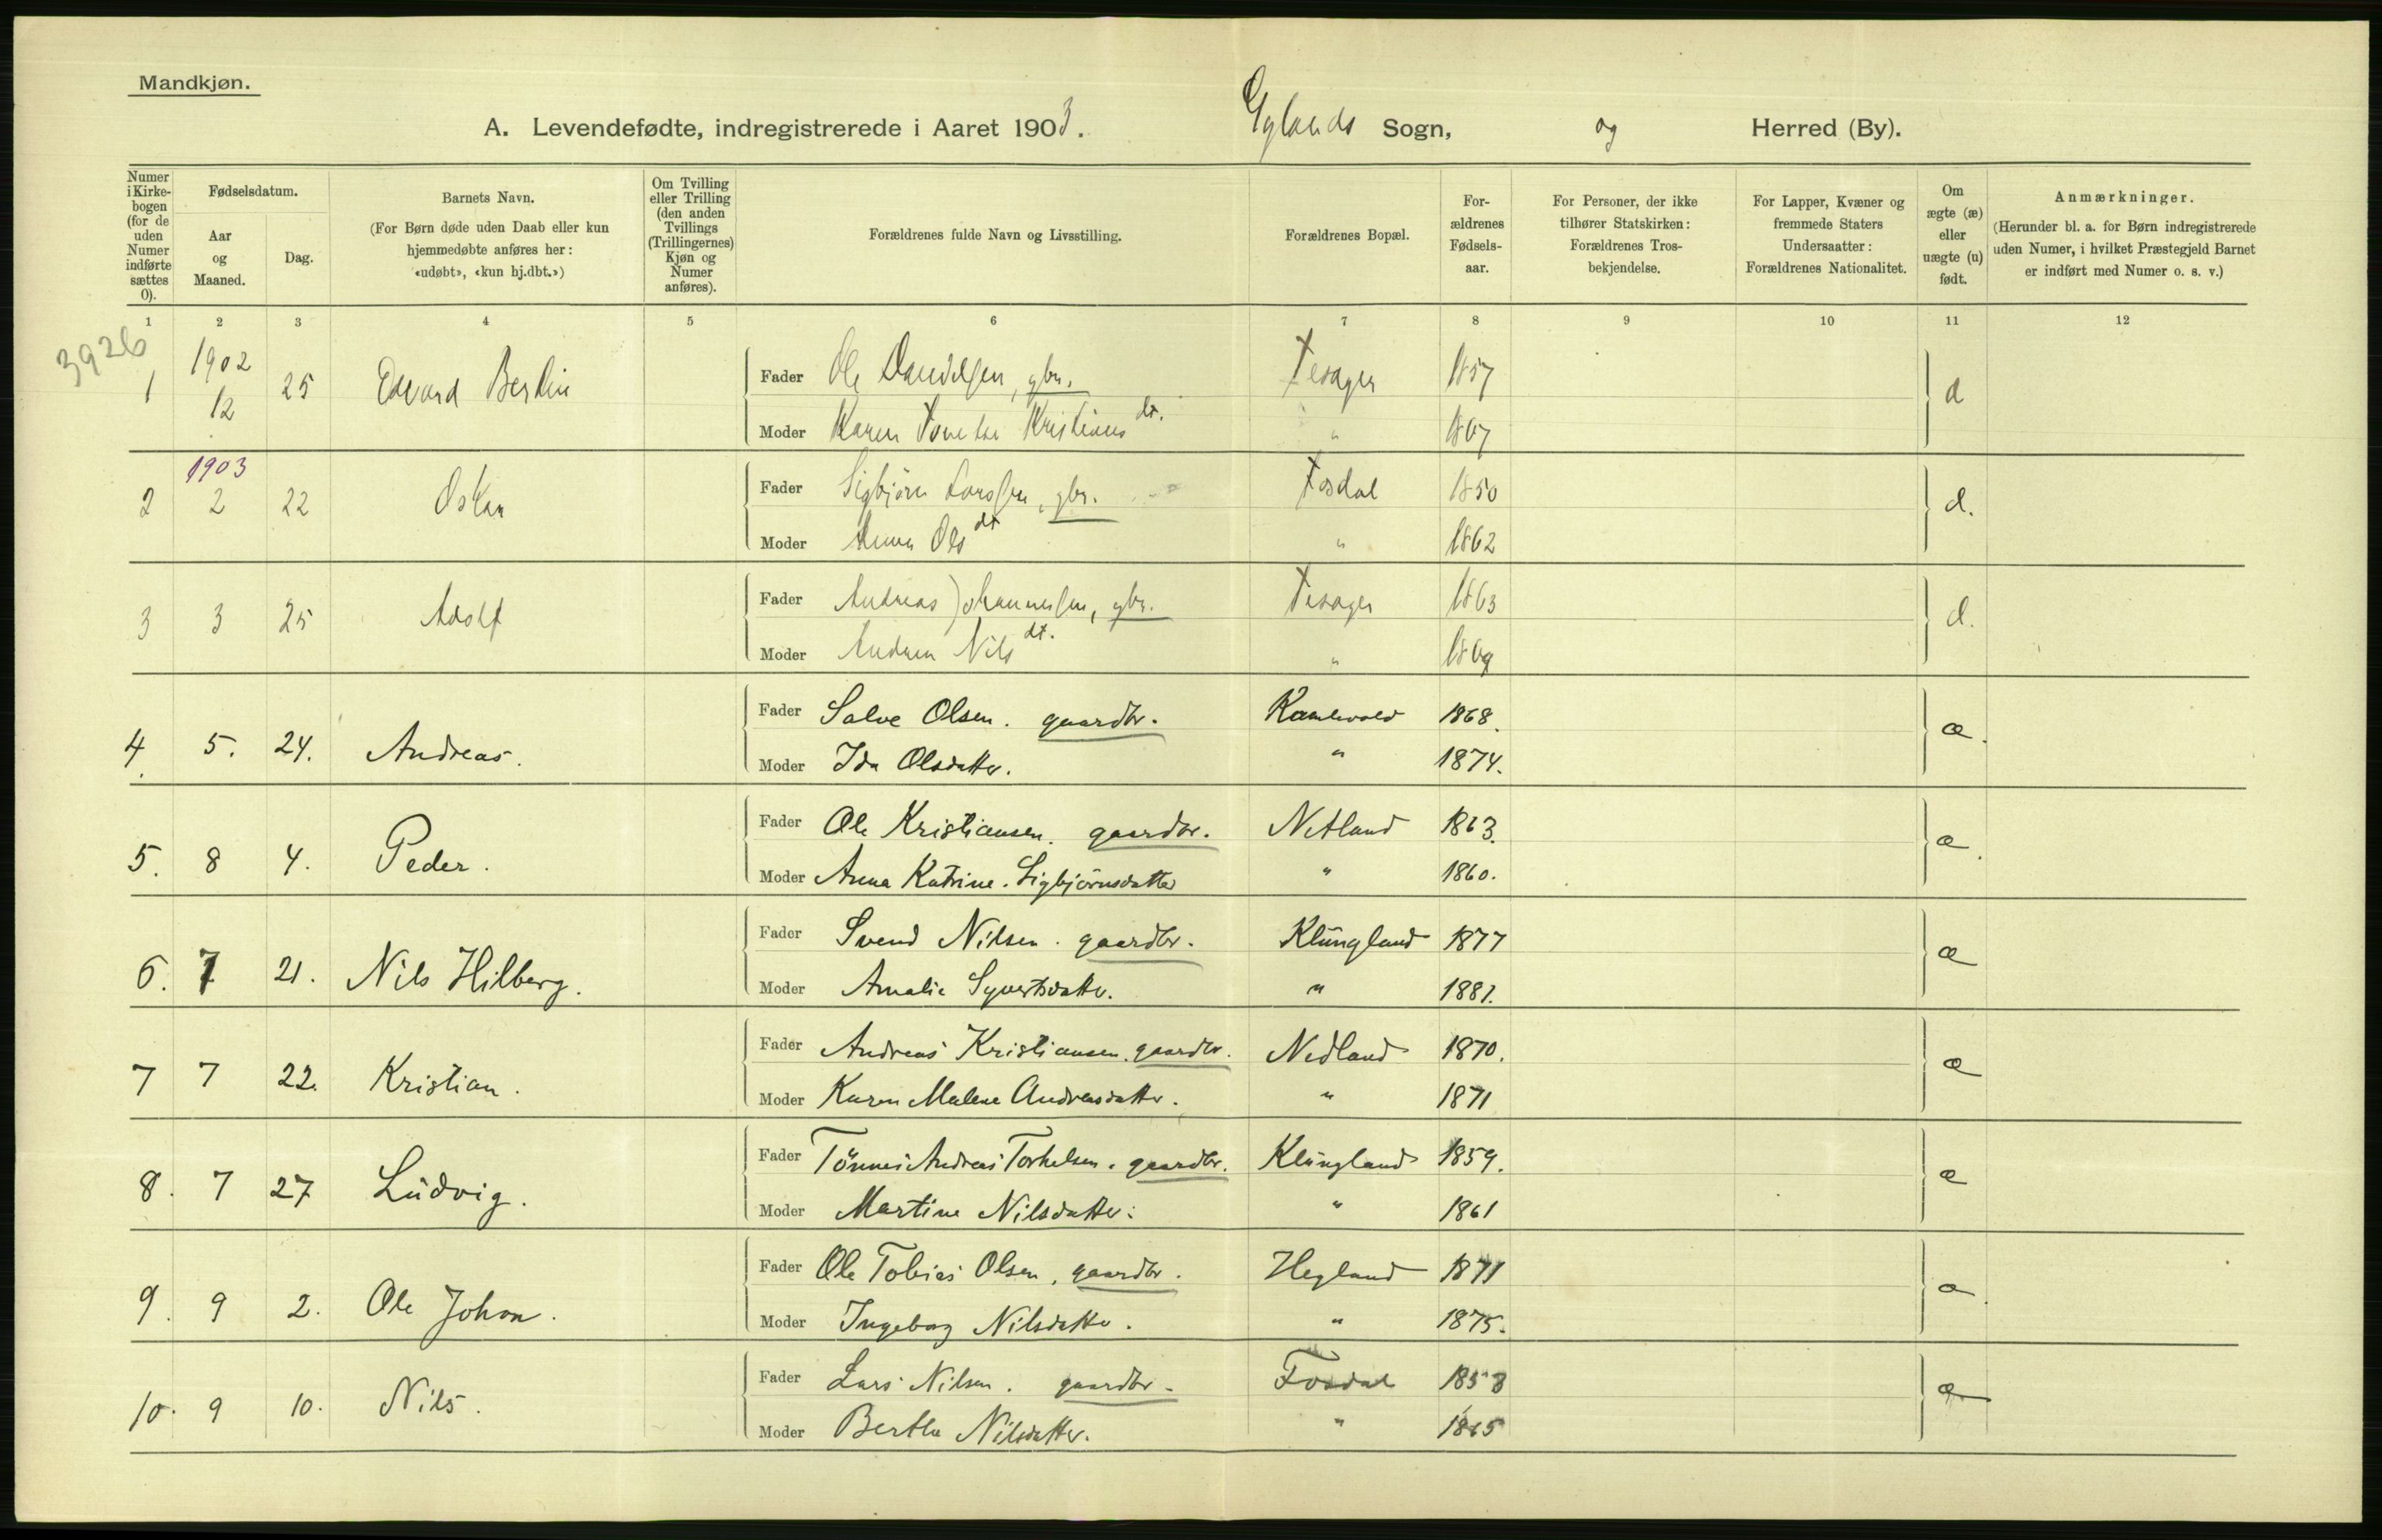 Mandkjøn.
A. Levendefødte, indregistrerede i Aaret 1903. Gylands Sogn, og Herred (By).
Numer i Kirke-bogen (for de uden Numer indførte sættes 0).
Fødselsdatum.
Aar og Maaned.
Dag.
Barnets Navn.
(For Børn døde uden Daab eller kun hjemmedøbte anføres her: «udøbt», «kun hj.dbt.»)
Om Tvilling eller Trilling (den anden Tvillings (Trillingernes) Kjøn og Numer anføres).
Forældrenes fulde Navn og Livsstilling.
Forældrenes Bopæl.
For-ældrenes Fødsels-aar.
For Personer, der ikke tilhører Statskirken: Forældrenes Tros-bekjendelse.
For Lapper, Kvæner og fremmede Staters Undersaatter: Forældrenes Nationalitet.
Om ægte (æ) eller uægte (u) født.
Anmærkninger.
(Herunder bl. a. for Børn indregistrerede uden Numer, i hvilket Præstegjeld Barnet er indført med Numer o. s. v.)
1 2 3 4 5 6 7 8 9 10 11 12
3926
1 1902 12 25 Edvard Berlin Fader Ole Danielsen, gbr. 1857
Moder Karen Kristians dt. " 1867
1903
2 2 22 Oskar Fader Sigbjörn Larssen, gbr. Fosdal 1850 d.
Moder Anna Ols dt " 1862
3 3 25 Adolf Fader Andreas Johannessen, gbr. 1863 d.
Moder Andrea Nils dt. " 1869
4. 5. 24. Andreas. Fader Salve Olsen. gaardbr. 1868. æ.
Moder Ida Olsdatter. " 1874.
5. 8 4. Peder. Fader Ole Kristiansen. gaardbr. Netland 1863. æ.
Moder Anna Katrine. Sigbjörnsdatter " 1860.
6. 7 21. Nils Hilberg. Fader Svend Nilsen. gaardbr. Klungland 1877 æ
Moder Amalie Syvertsdatter. " 1881.
7 7 22. Kristian. Fader Andreas Kristiansen. gaardbr. Nedland 1870. æ
Moder Karen Malene Andreasdatter. " 1871
8. 7 27 Ludvig. Fader Tönnes Andreas Torkelsen. gaardbr. Klungland 1859. æ
Moder Martine Nilsdatter. " 1861
9. 9 2. Ole Johan. Fader Ole Tobias Olsen, gaardbr. Hegland 1871 æ.
Moder Ingeborg Nilsdatter. " 1875.
10. 9 10. Nils. Fader Lars Nilsen. gaardbr. Fosdal 1858 æ
Moder Berthe Nilsdatter. " 1865